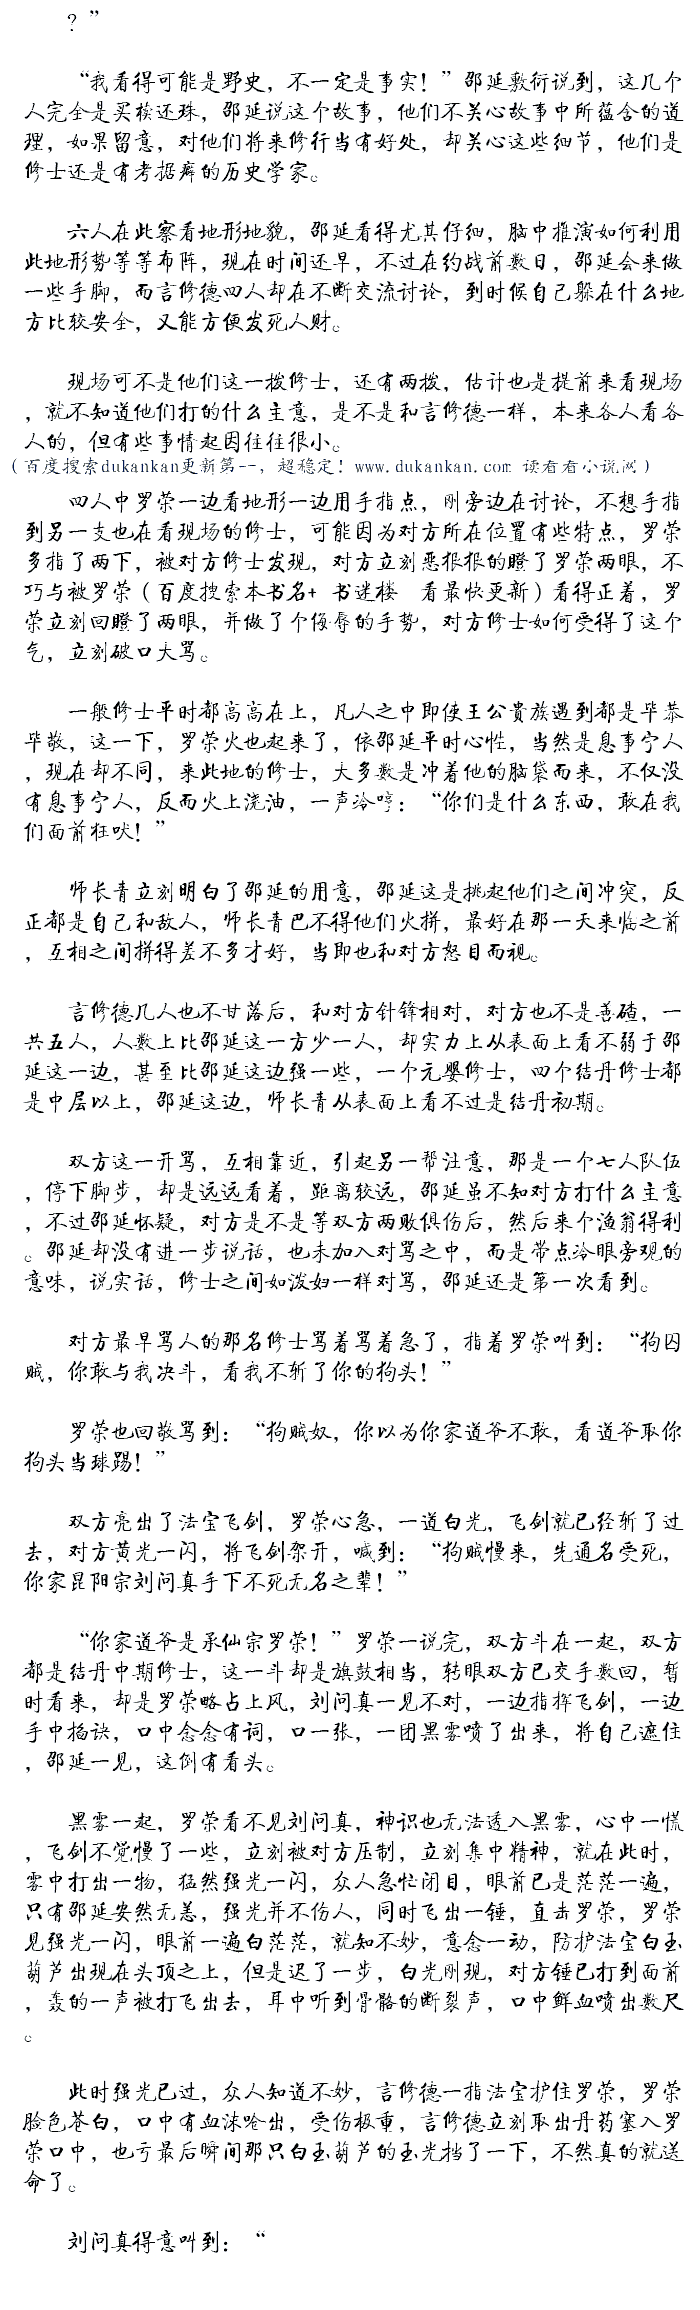 ？”
“我看得可能是野史，不一定是事实！”邵延敷衍说到，这几个
人完全是买椟还珠，邵延说这个故事，他们不关心故事中所蕴含的道
理，如果留意，对他们将来修行当有好处，却关心这些细节，他们是
修士还是有考据癖的历史学家。
六人在此察看地形地貌，邵延看得尤其仔细，脑中推演如何利用
此地形势等等布阵，现在时间还早，不过在约战前数日，邵延会来做
一些手脚，而言修德四人却在不断交流讨论，到时候自己躲在什么地
方比较安全，又能方便发死人财。
现场可不是他们这一拨修士，还有两拨，估计也是提前来看现场
，就不知道他们打的什么主意，是不是和言修德一样，本来各人看各
人的，但有些事情起因往往很小。
(百度搜索dukankan更新第--，超稳定！www.dukankan.com 读看看小说网)
四人中罗荣一边看地形一边用手指点，刚旁边在讨论，不想手指
到另一支也在看现场的修士，可能因为对方所在位置有些特点，罗荣
多指了两下，被对方修士发现，对方立刻恶狠狠的瞪了罗荣两眼，不
巧与被罗荣（百度搜索本书名+ 书迷楼 看最快更新）看得正着，罗
荣立刻回瞪了两眼，并做了个侮辱的手势，对方修士如何受得了这个
气，立刻破口大骂。
一般修士平时都高高在上，凡人之中即使王公贵族遇到都是毕恭
毕敬，这一下，罗荣火也起来了，依邵延平时心性，当然是息事宁人
，现在却不同，来此地的修士，大多数是冲着他的脑袋而来，不仅没
有息事宁人，反而火上浇油，一声冷哼：“你们是什么东西，敢在我
们面前狂吠！”
师长青立刻明白了邵延的用意，邵延这是挑起他们之间冲突，反
正都是自己和敌人，师长青巴不得他们火拼，最好在那一天来临之前
，互相之间拼得差不多才好，当即也和对方怒目而视。
言修德几人也不甘落后，和对方针锋相对，对方也不是善碴，一
共五人，人数上比邵延这一方少一人，却实力上从表面上看不弱于邵
延这一边，甚至比邵延这边强一些，一个元婴修士，四个结丹修士都
是中层以上，邵延这边，师长青从表面上看不过是结丹初期。
双方这一开骂，互相靠近，引起另一帮注意，那是一个七人队伍
，停下脚步，却是远远看着，距离较远，邵延虽不知对方打什么主意
，不过邵延怀疑，对方是不是等双方两败俱伤后，然后来个渔翁得利
。邵延却没有进一步说话，也未加入对骂之中，而是带点冷眼旁观的
意味，说实话，修士之间如泼妇一样对骂，邵延还是第一次看到。
对方最早骂人的那名修士骂着骂着急了，指着罗荣叫到：“狗囚
贼，你敢与我决斗，看我不斩了你的狗头！”
罗荣也回敬骂到：“狗贼奴，你以为你家道爷不敢，看道爷取你
狗头当球踢！”
双方亮出了法宝飞剑，罗荣心急，一道白光，飞剑就已经斩了过
去，对方黄光一闪，将飞剑架开，喊到：“狗贼慢来，先通名受死，
你家昆阳宗刘问真手下不死无名之辈！”
“你家道爷是承仙宗罗荣！”罗荣一说完，双方斗在一起，双方
都是结丹中期修士，这一斗却是旗鼓相当，转眼双方已交手数回，暂
时看来，却是罗荣略占上风，刘问真一见不对，一边指挥飞剑，一边
手中掐诀，口中念念有词，口一张，一团黑雾喷了出来，将自己遮住
，邵延一见，这倒有看头。
黑雾一起，罗荣看不见刘问真，神识也无法透入黑雾，心中一慌
，飞剑不觉慢了一些，立刻被对方压制，立刻集中精神，就在此时，
雾中打出一物，猛然强光一闪，众人急忙闭目，眼前已是茫茫一遍，
只有邵延安然无恙，强光并不伤人，同时飞出一锤，直击罗荣，罗荣
见强光一闪，眼前一遍白茫茫，就知不妙，意念一动，防护法宝白玉
葫芦出现在头顶之上，但是迟了一步，白光刚现，对方锤已打到面前
，轰的一声被打飞出去，耳中听到骨骼的断裂声，口中鲜血喷出数尺
。
此时强光已过，众人知道不妙，言修德一指法宝护住罗荣，罗荣
脸色苍白，口中有血沫呛出，受伤极重，言修德立刻取出丹药塞入罗
荣口中，也亏最后瞬间那只白玉葫芦的玉光挡了一下，不然真的就送
命了。
刘问真得意叫到：“